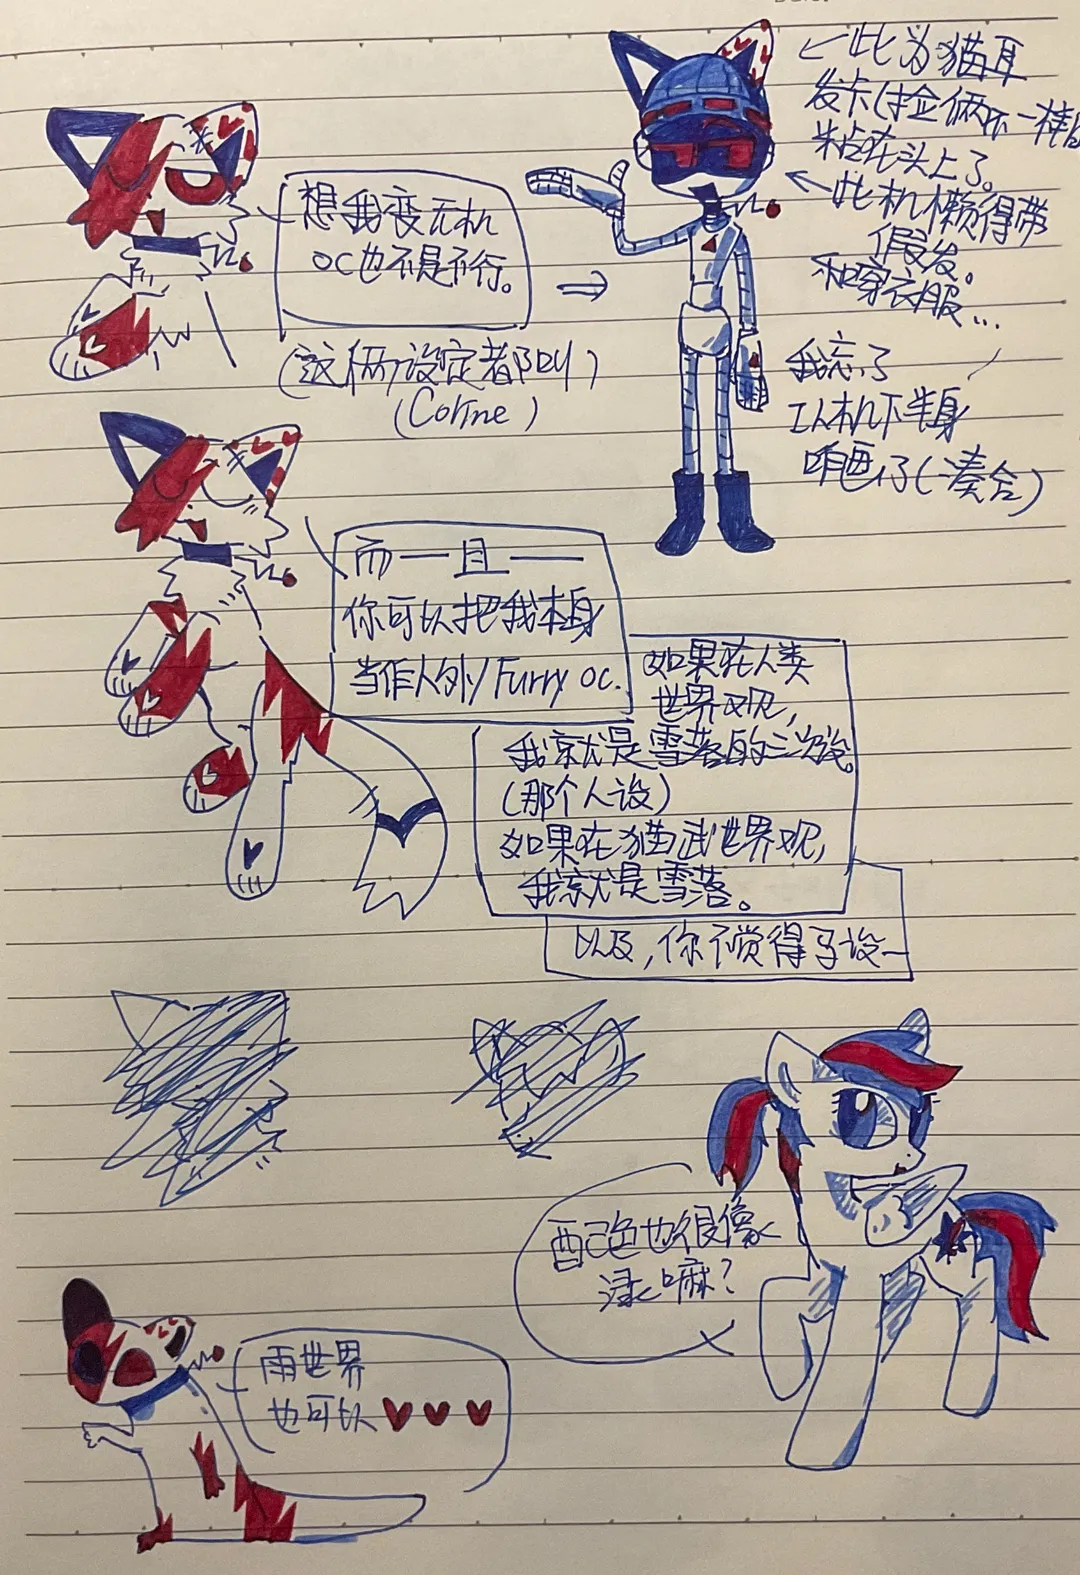 想我变无机
OC也不是不行。
(这俩设定者都叫)
(Corine)
←此为猫耳
发卡(捡俩不一样的
粘在头上了。
←此机懒得带
假发。
和穿衣服...
我忘了
工机下半身
咋画了(凑合)
而一且一
你可以把我本身
当作人外/Furry OC.
如果在人类
世界观,
我就是雪落的三次设。
(那个人设)
如果在猫武世界观,
我就是雪落。
以及,你不觉得马设一
配色也很像
嘛?
雨世界
也可以